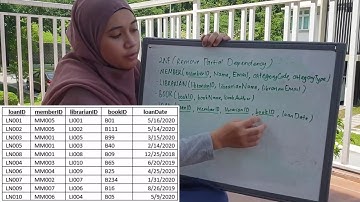 2NF (Remove Partial Dependency)
MEMBER (memberID, Name, Email, categoryCode, categoryType)
LIBRARIAN (librarianID, librarianName, librarianEmail)
BOOK (bookID, bookName, bookAuthor)
memberID, librarianID, bookID, loanDate)
loanID memberID librarianID bookID loanDate
LN001 MM005 LI001 B01 5/16/2020
LN002 MM005 LI002 B111 5/14/2020
LN003 MM001 LI005 B99 8/15/2020
LN004 MM005 LI003 B40 2/14/2020
LN005 MM001 LI008 B09 12/25/2018
LN006 MM003 LI010 B65 6/20/2019
LN007 MM005 LI004 B25 4/25/2020
LN008 MM006 LI007 B234 1/31/2020
LN009 MM006 LI009 B16 8/26/2019
LN010 MM006 LI004 B05 5/9/2020